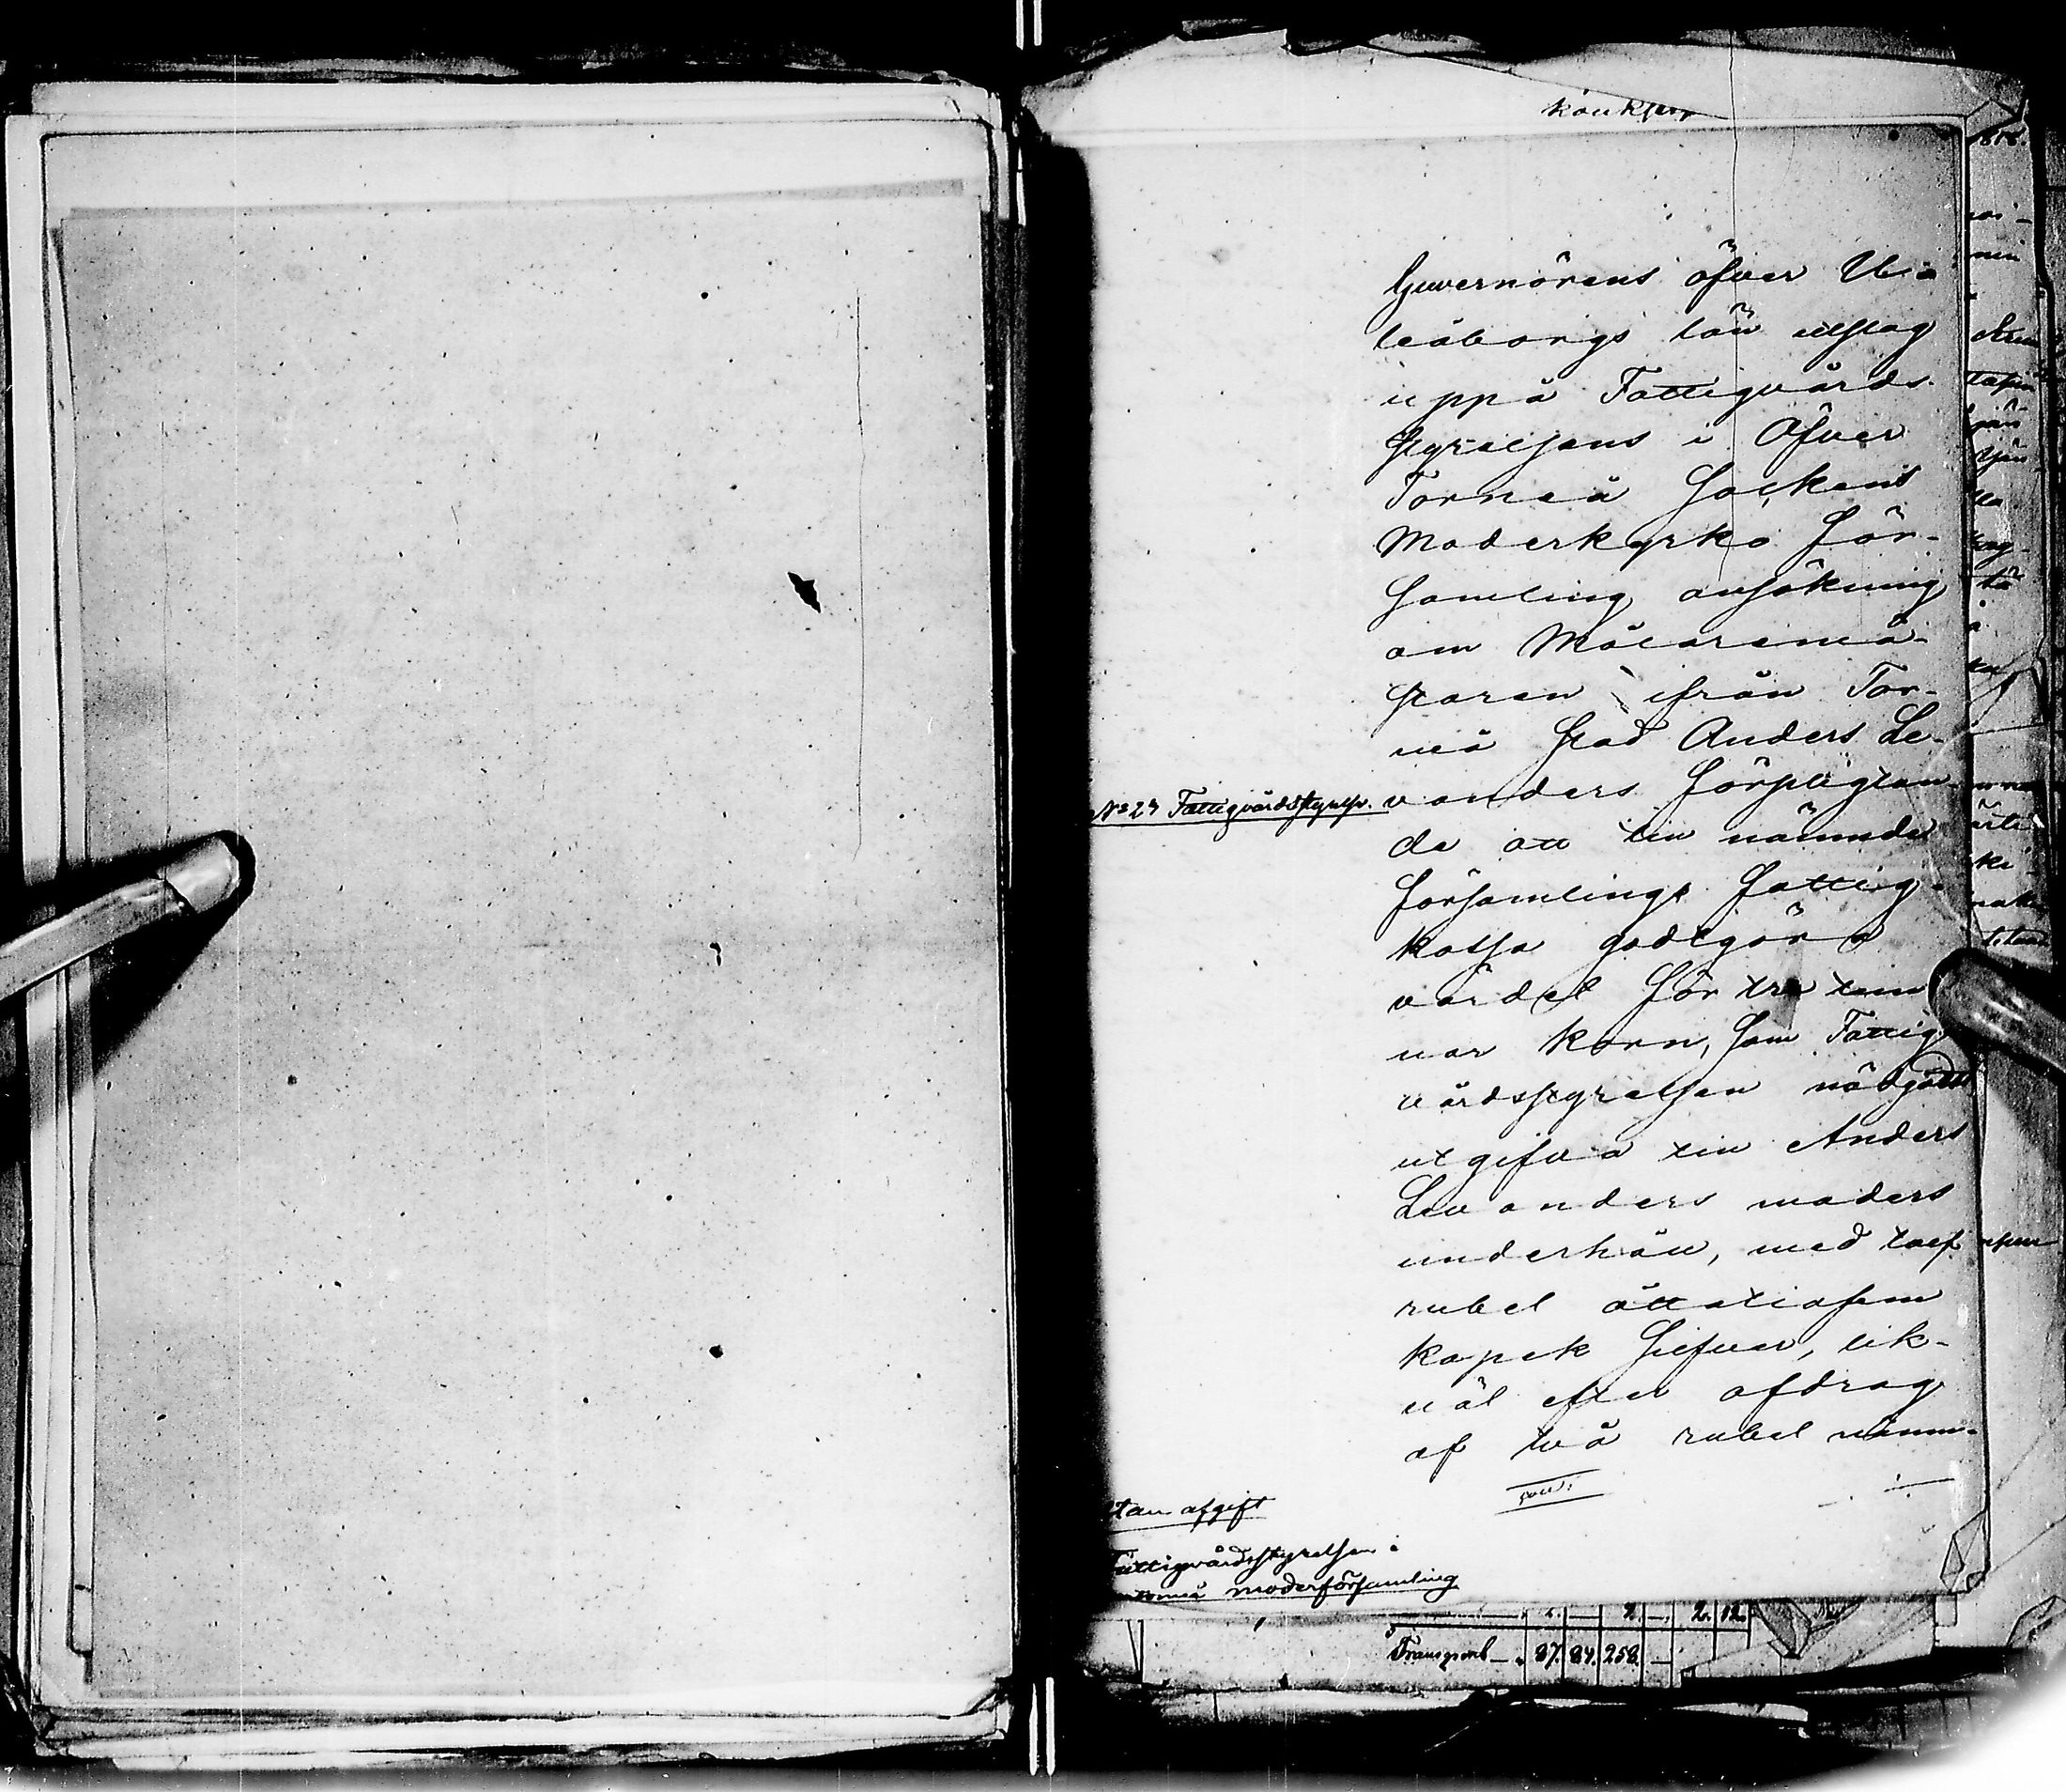 Guvernörens öfver Ule-
åborgs län utslag
uppå Fattigvårds-
styrelsens i Öfver
Torneå Sockens
Moderkyrko för-
samling ansökning
om Målaremä-
staren ifrån Tor-
neå stad Anders Le-
No 27 Fattigvårdsstyrelse.
vanders förpligtan-
de att till nämnde
församlings fattig-
kassa godtgöra
värdet för tre tun
nor korn, som Fattig-
vårdsstyrelsen nödgats
utgifva till Anders
Levanders moders
underhåll, med tolf
rubel åttatiofem
kopek Silfver, lik-
väl efter afdrag
af två rubel
Utan afgift
Fattigvårdsstyrelsen i
Torneå moderförsamling
2. 12.
Transport 87. 84. 258.